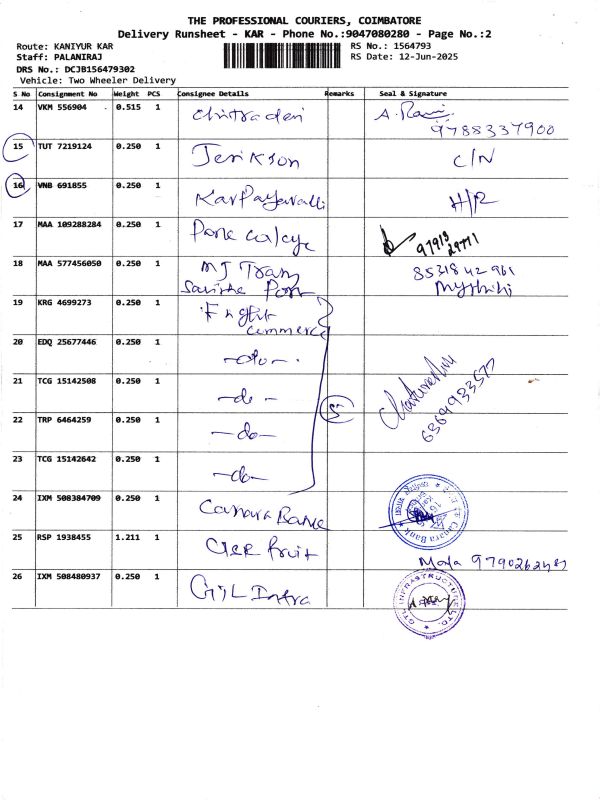 THE PROFESSIONAL COURIERS, COIMBATORE
Delivery Runsheet - KAR - Phone No.:9047080280 - Page No.:2
Route: KANIYUR KAR
Staff: PALANIRAJ
DRS No.: DCJB156479302
Vehicle: Two Wheeler Delivery
RS No.: 1564793
RS Date: 12-Jun-2025
S No Consignment No Weight PCS Consignee Details Remarks Seal & Signature
14 VKM 556904 0.515 1 A. Rani
9788337900
15 TUT 7219124 0.250 1 Jerikson C/N
16 VNB 691855 0.250 1 Karpayavalli H/R
17 MAA 109288284 0.250 1 97919
18 MAA 577456050 0.250 1 MJ Trans 8531842961
19 KRG 4699273 0.250 1 English
commerce
20 EDQ 25677446 0.250 1 -do-
21 TCG 15142508 0.250 1 -do- 5
22 TRP 6464259 0.250 1 -do-
6364933577
23 TCG 15142642 0.250 1 -do-
24 IXM 508384709 0.250 1 Canara Bank Canara Bank
25 RSP 1938455 1.211 1 Fruit Mala
26 IXM 508480937 0.250 1 GTL Infra GTL INFRASTRUCTURE LTD.